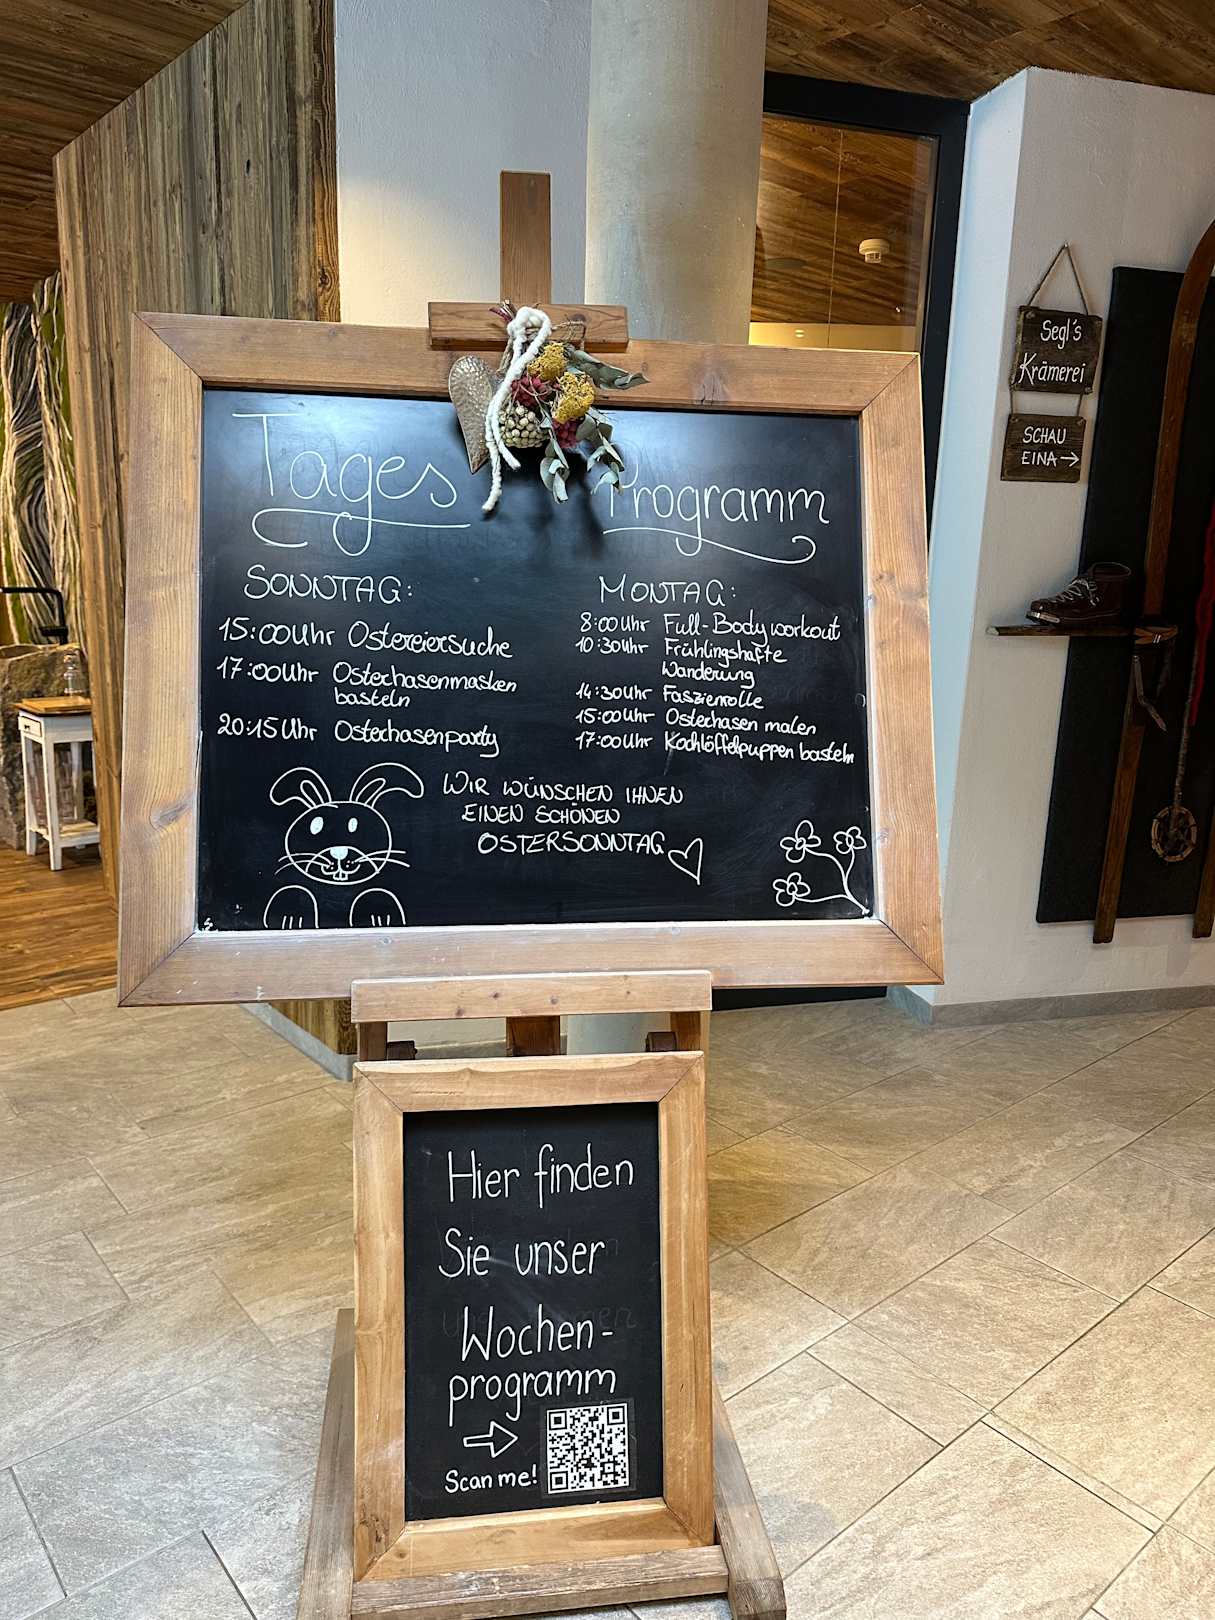 Tages Programm
SONNTAG:
15:00Uhr Ostereiersuche
17:00Uhr Osterhasenmasken
basteln
20:15 Uhr Osterhasenparty
MONTAG:
8:00Uhr Full-Body workout
10:30Uhr Frühlingshafte
Wanderung
14:30Uhr Faszienrolle
15:00Uhr Osterhasen malen
17:00Uhr Kochlöffelpuppen basteln
WIR WÜNSCHEN IHNEN
EINEN SCHÖNEN
OSTERSONNTAG
Segl's
Krämerei
SCHAU
EINA →
Hier finden
Sie unser
Wochen-
programm
Scan me!